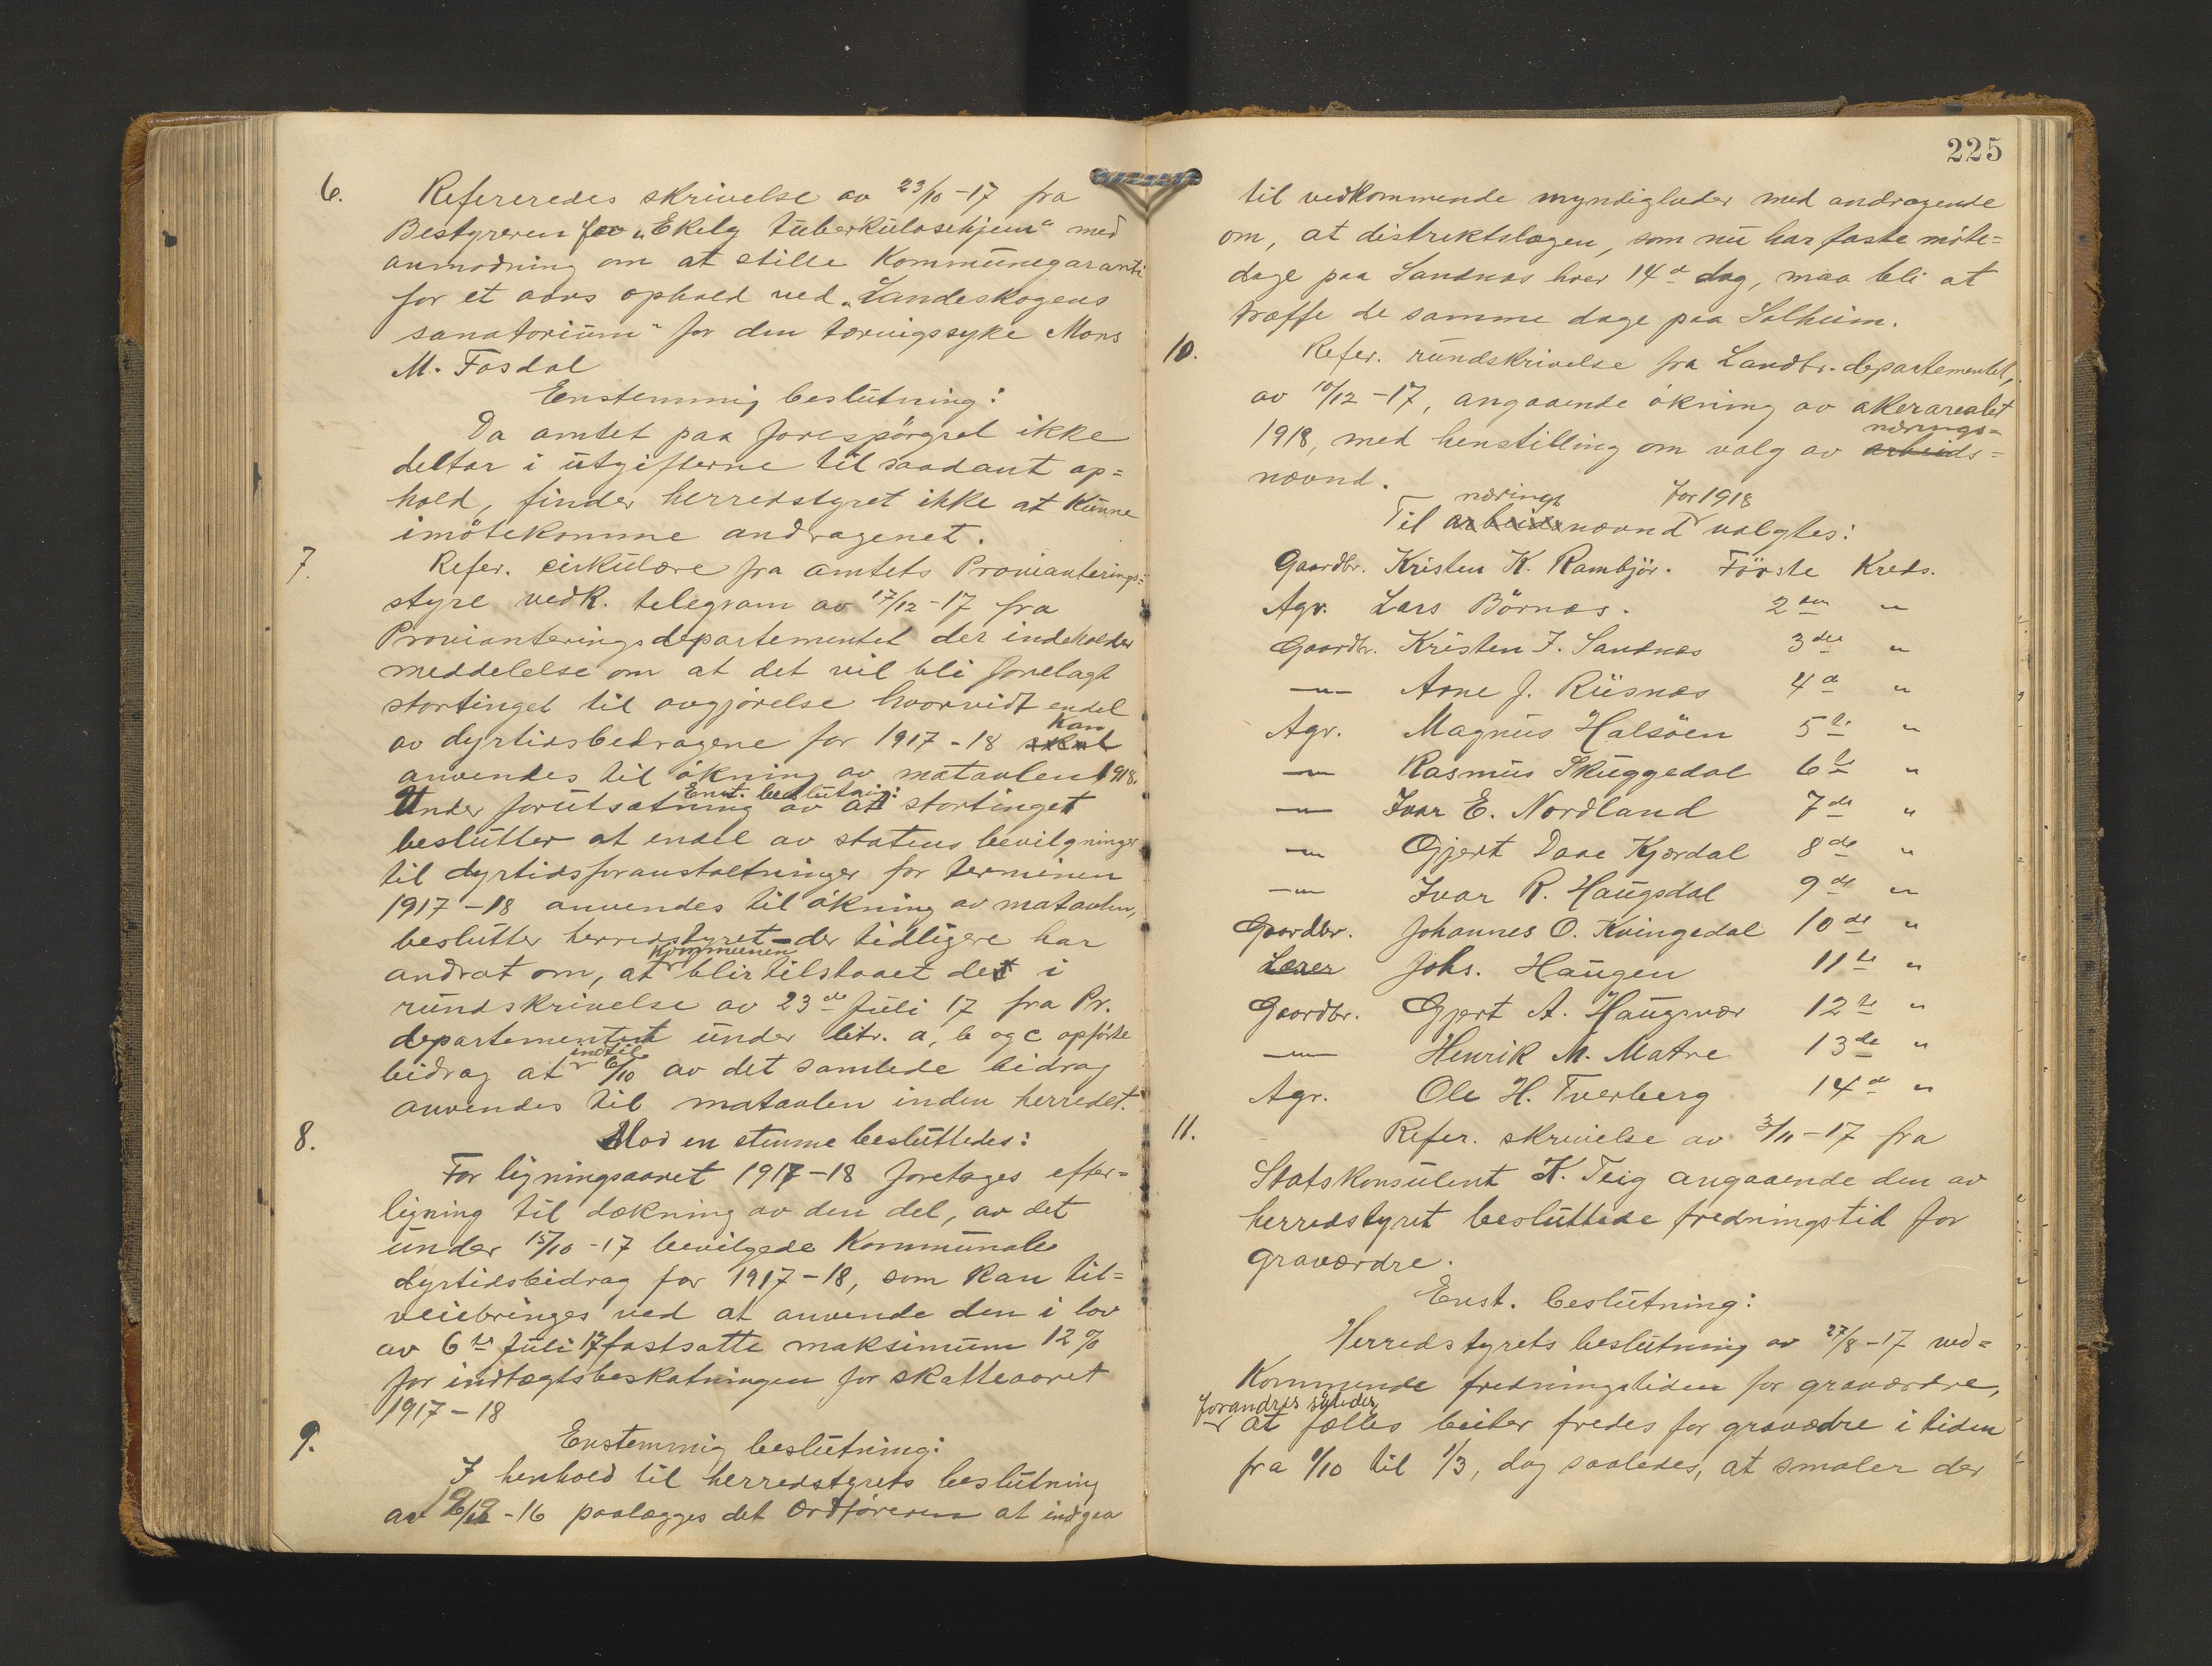 6. Refereredes skrivelse av 23/10-17 fra
Bestyreren for "Ekely tuberkulosehjem" med
anmodning om at stille Kommunegaranti
for et aars ophold ved "Landeskogens
sanatorium" for den tæringssyke Mons
M. Fosdal
Enstemmig beslutning:
Da amtet paa forespörgsel ikke
deltar i utgifterne til saadant op=
hold, finder herredstyret ikke at kunne
imötekomme andragenet.
7. Refer. cirkulære fra amtets Provianterings=
styre vedk. telegram av 17/12-17 fra
Provianteringsdepartementet der indeholder
meddelelse om at det vil bli forelagt
stortinget til avgjörelse hvorvidt endel
av dyrtidsbedragene for 1917-18 skal kan
anvendes til ökning av matavlen 1918.
Enst. beslutning:
Under forutsætning av at stortinget
beslutter at endel av statens bevilgninger
til dyrtidsforanstaltninger for terminen
1917-18 anvendes til ökning av matavlen,
beslutter herredstyret - der tidligere har
andrat om, at kommunen blir tilstaaet det i
rundskrivelse av 23de Juli 17 fra Pr.
departementet under litr. a, b og c opförte
bidrag at indtil 6/10 av det samlede bidrag
anvendes til matavlen inden herredet.
8. Mod en stemme besluttedes:
For ligningsaaret 1917-18 foretages efter=
ligning til dækning av den del, av det
under 15/10-17 bevilgede Kommunale
dyrtidsbidrag for 1917-18, som kan til=
veiebringes ved at anvende den i lov
av 6te Juli 17 fastsatte maksimum 12%
for indtægtsbeskatningen for skatteaaret
1917-18
9. Enstemmig beslutning:
I henhold til herredstyrets beslutning
av -16 paalægges det Ordföreren at indgaa
225
til vedkommende myndigheder med andragende
om, at distriktslægen, som nu har faste möte=
dage paa Sandnes hver 14de dag, maa bli at
træffe de samme dage paa Solheim.
10. Refer. rundskrivelse fra Landbr. departementet,
av 10/12-17, angaaende ökning av akerarealet
1918, med henstilling om valg av arbeids= nærings=
nævnd.
Til arbeids nærings nævnd for 1918 valgtes:
Gaardbr. Kristen K. Rambjör. Förste Kreds.
Agr. Lars Börnes. 2den "
Gaardbr. Kristen J. Sandnes 3die "
-"- Arne J. Riisnes 4de "
Agr. Magnus Halsöen 5te "
-"- Rasmus Skuggedal 6te "
-"- Ivar E. Nordland 7de "
-"- Gjert Daae Kjærdal 8de "
-"- Ivar R. Haugsdal 9de "
Gaardbr. Johannes O. Kvingedal 10de "
Lærer Johs. Haugen 11te "
Gaardbr. Gjert A. Haugsvær 12te "
-"- Henrik M. Matre 13de "
Agr. Ole H. Tverberg 14de "
11. Refer. skrivelse av 3/11-17 fra
Statskonsulent K. Teig angaaende den av
herredstyret besluttede fredningstid for
graværdre.
Enst. beslutning:
Herredstyrets beslutning av 27/8-17 ved=
kommende fredningstiden for graværdre,
forandres således,
at fælles beiter fredes for graværdre i tiden
fra 1/10 til 1/3, dog saaledes, at smaler der